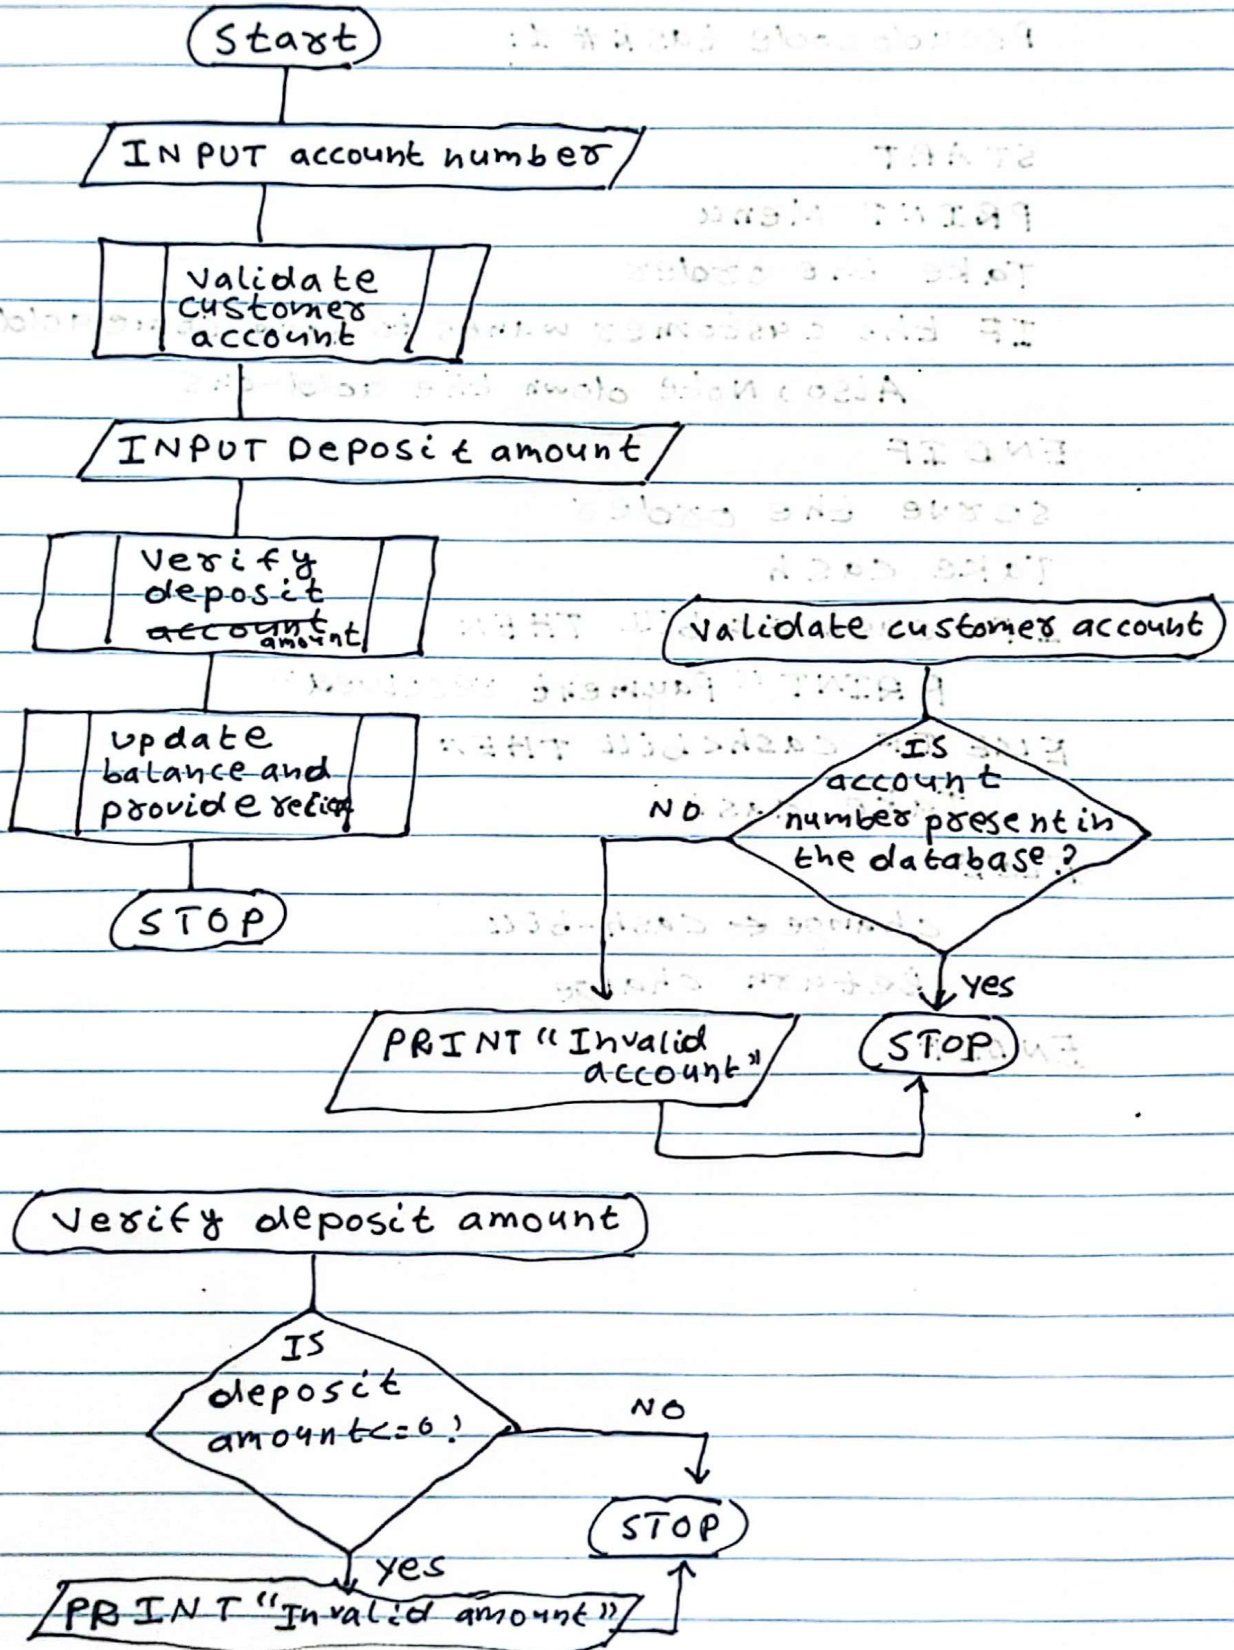 Start
INPUT account number
Validate
customer
account
INPUT Deposit amount
Verify
deposit
account
amount
update
balance and
provide reciept
STOP
Validate customer account
IS
account
number present in
the database?
NO
yes
PRINT "Invalid
account"
STOP
Verify deposit amount
IS
deposit
amount<=0?
NO
STOP
yes
PRINT "Invalid amount"